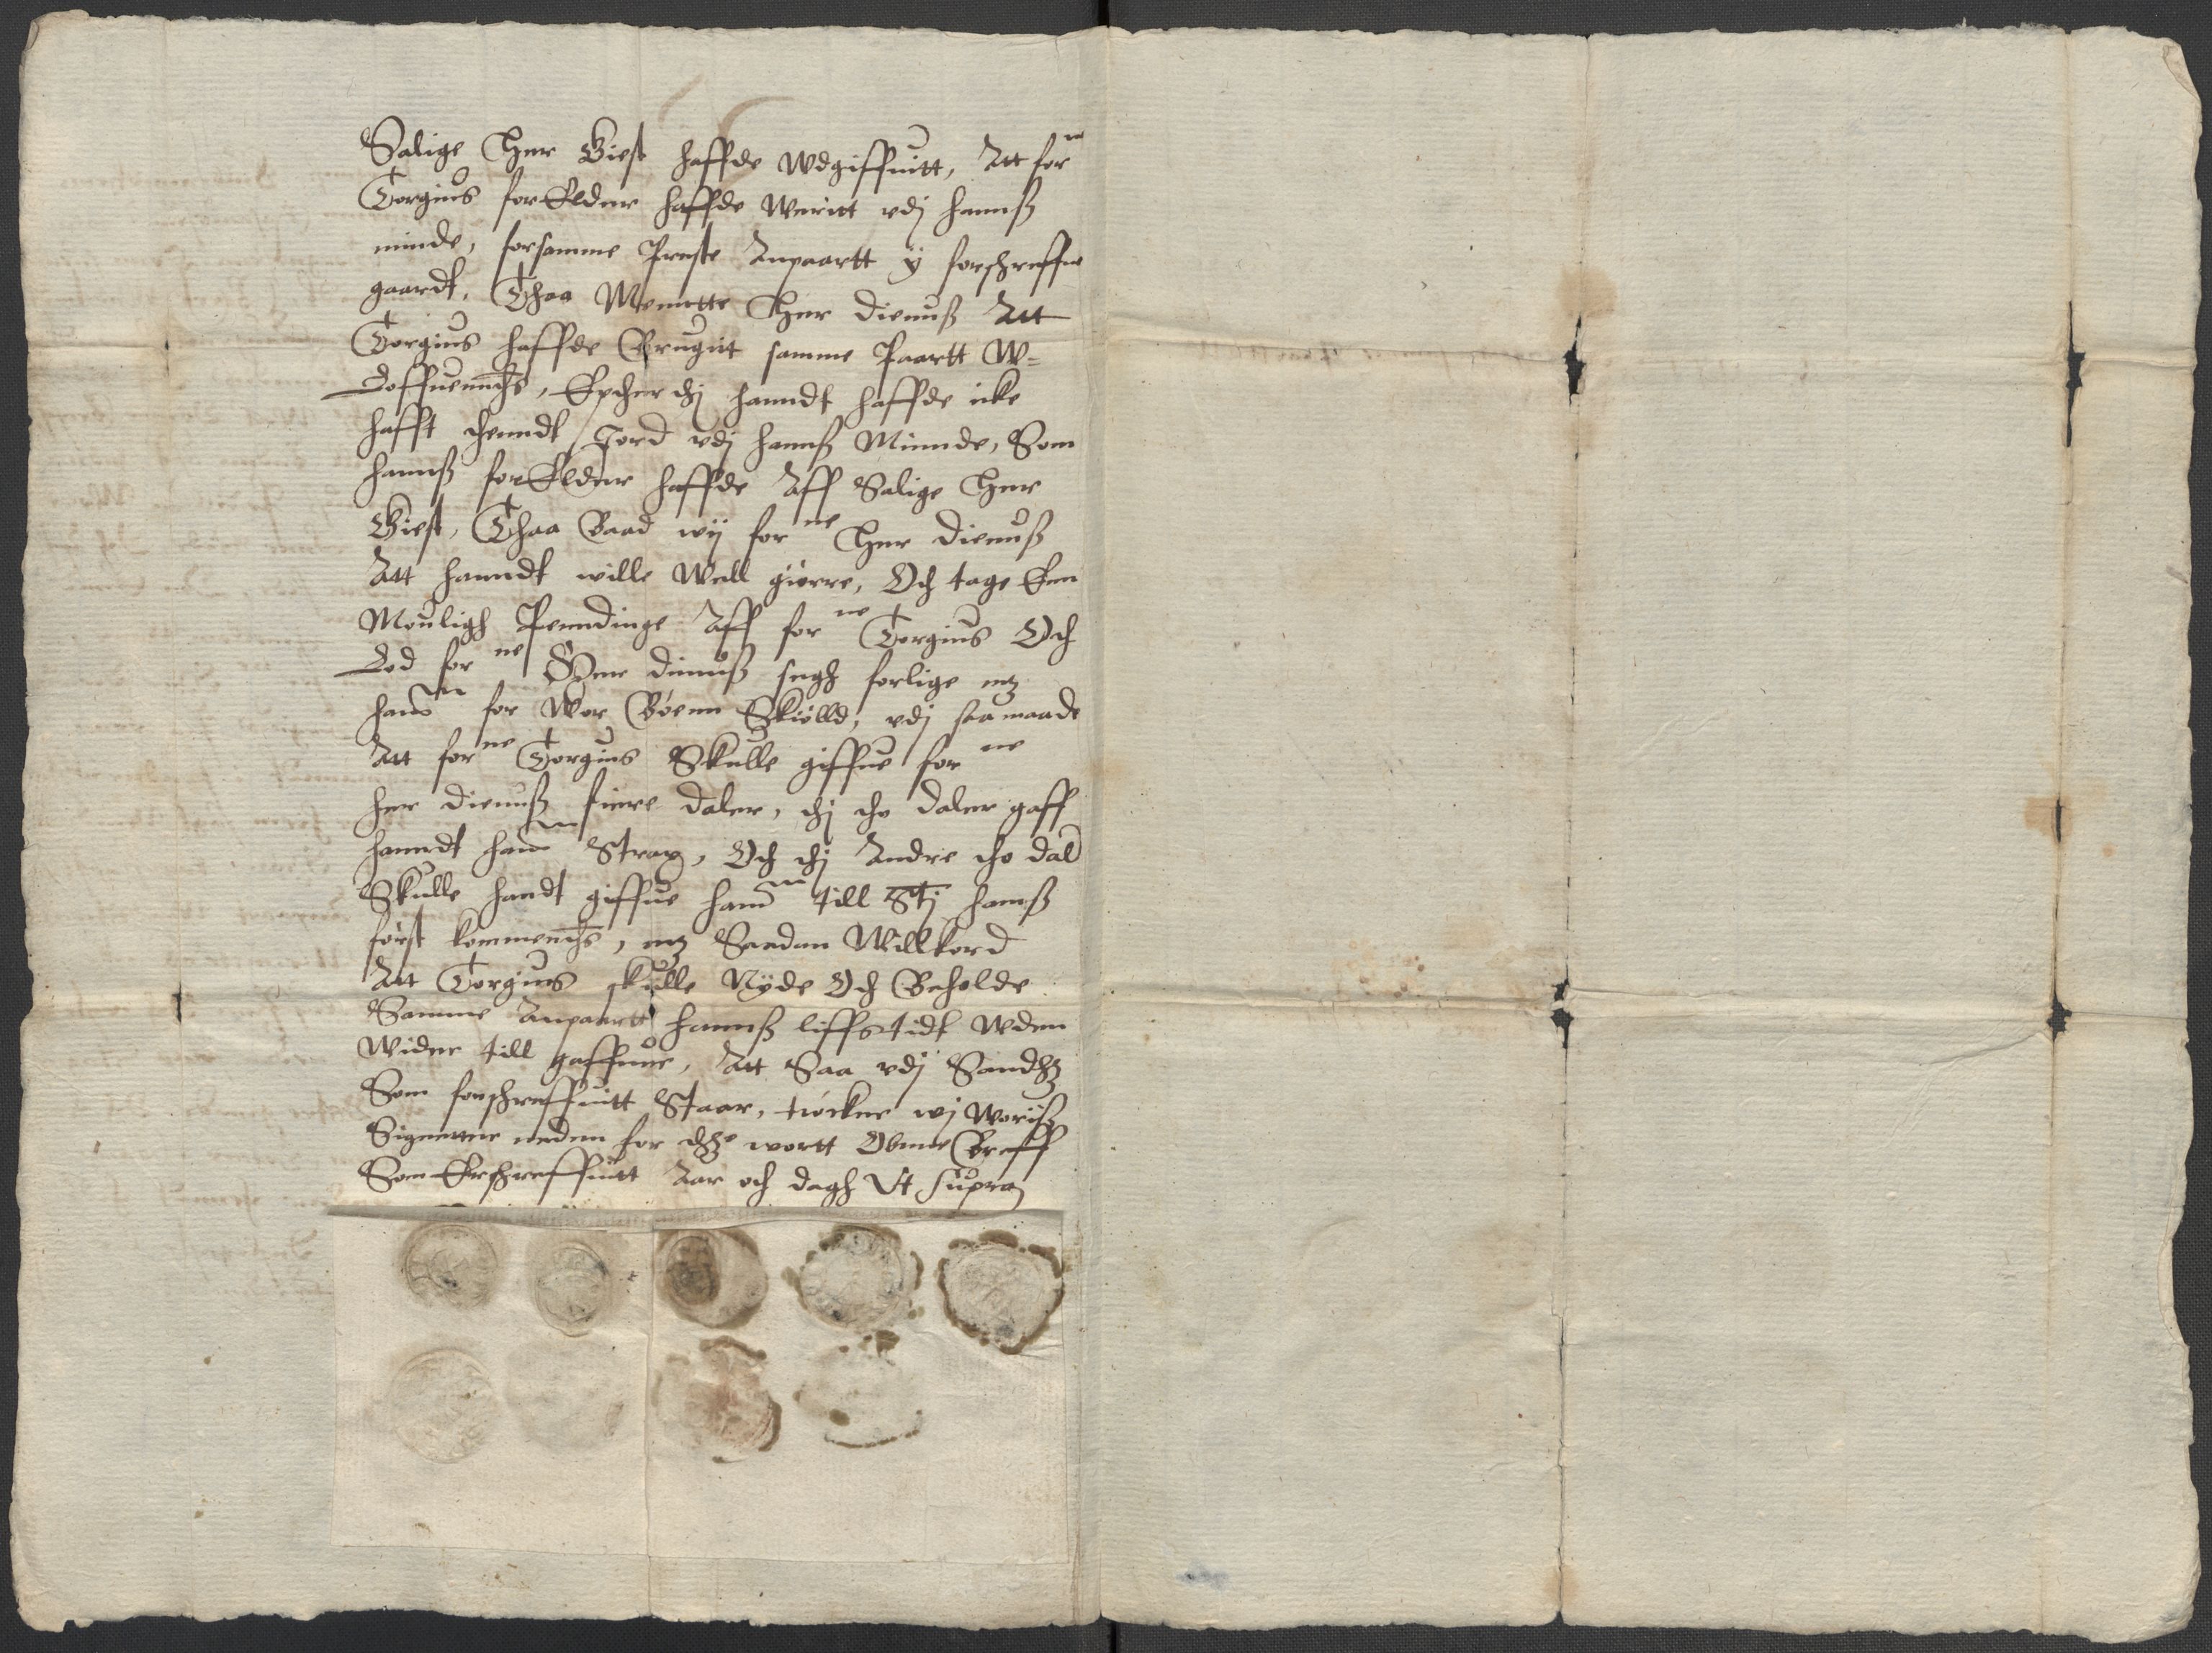 Salige Her Giest haffde wdgiffuitt, Att forne
Torgius forEldrer haffde Werritt vdj hannß
minde, forsamme Preste Anpaartt y forschreffne
gaardt, Thaa Menntte Her Dienuß Att
Torgius haffde Brugitt samme Paartt W=
Loffuennds, Epther thj hanndt haffde icke
hafft thenndt Jord vdj hannß Minnde, Som
hannß forEldrer haffde Aff Salige Her
Giest, Thaa Baad wij forne Her Dienuß
Att hanndt wille Well giørre, Och tage Enn
Mouligh Penndinge Aff forne Torgius Och
Lod forne Her Dinnuß segh forlige mz
ham for Wor Bøenn Skiølld, vdj saa maade
Att forne Torgius Skulle giffue forne
her Dienuß fiere daler, thj tho daler gaff
hanndt ham Strax, Och thj Andre tho dal
Skulle handt giffue ham till Stj hanß
først kommends, mz Saadan Willkord
Att Torgius skulle Nyde Och Beholde
Samme Anpaartt hannß liffs tidt wden
wider till gaffuue, Att Saa vdj Sandhz
Som forschreffuitt Staar, trøcker wj woriß
Signetter neden for thze wortt Obnne Breff
Som Erschreffuitt Aar och dagh Vt supra